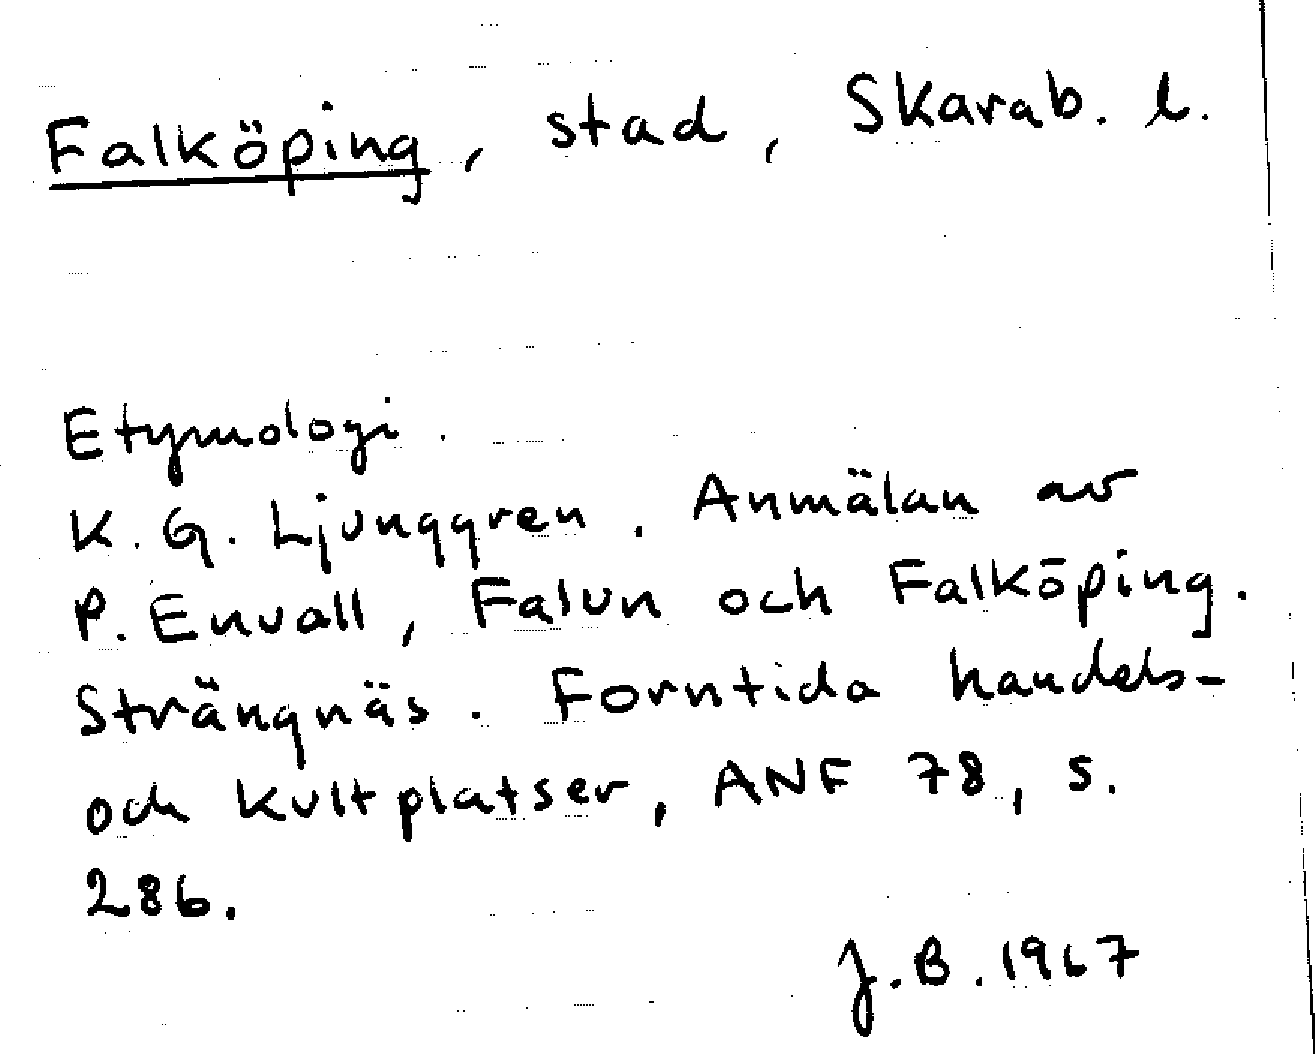 Falköping, stad, Skarab. l.
Etymologi.
K. G. Ljunggren. Anmälan av
P. Envall, Falun och Falköping.
Strängnäs. Forntida handels-
och kultplatser, ANF 78, s.
286.
J.B. 1967